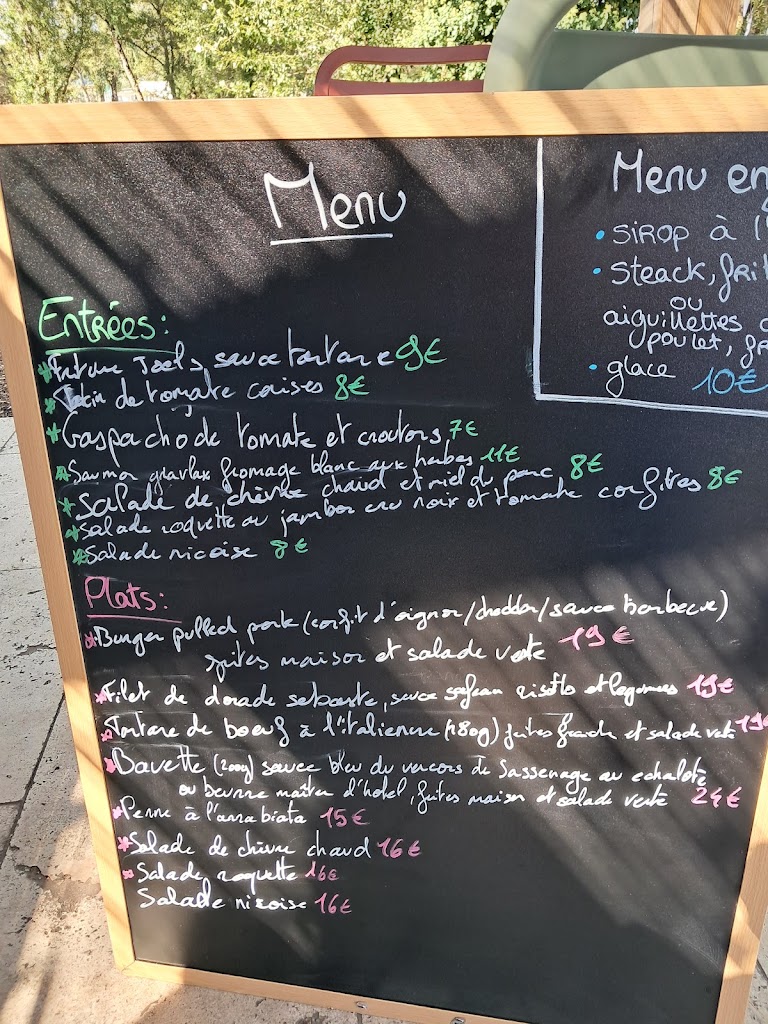 Menu
Entrées:
Friture Joels, sauce tartare 9€
de tomate caises 8€
Gaspacho de tomate et croutons 7€
Saumon gravlax fromage blanc aux herbes 11€
Salade de chèvre chaud et miel du parc 8€
Salade roquette au jambon cru noix et tomate confites 8€
Salade nicoise 8€
Plats:
Burger pulled pork (confit d'oignon/cheddar/sauce barbecue)
frites maison et salade verte 19€
Filet de dorade sebaste, sauce safran risotto et legumes 19€
Tartare de boeuf à l'italienne (180g) frites fraiche et salade verte 19
Bavette (200g) sauce bleu du vercors de Sassenage au echalote
ou beurre maitre d'hotel, frites maison et salade verte 24€
Penne à l'arrabiata 15€
Salade de chèvre chaud 16€
Salade roquette 16€
Salade nicoise 16€
Menu en
• SIROP à l'
• Steack, frit
ou
aiguillettes
poulet, fr
• glace 10€